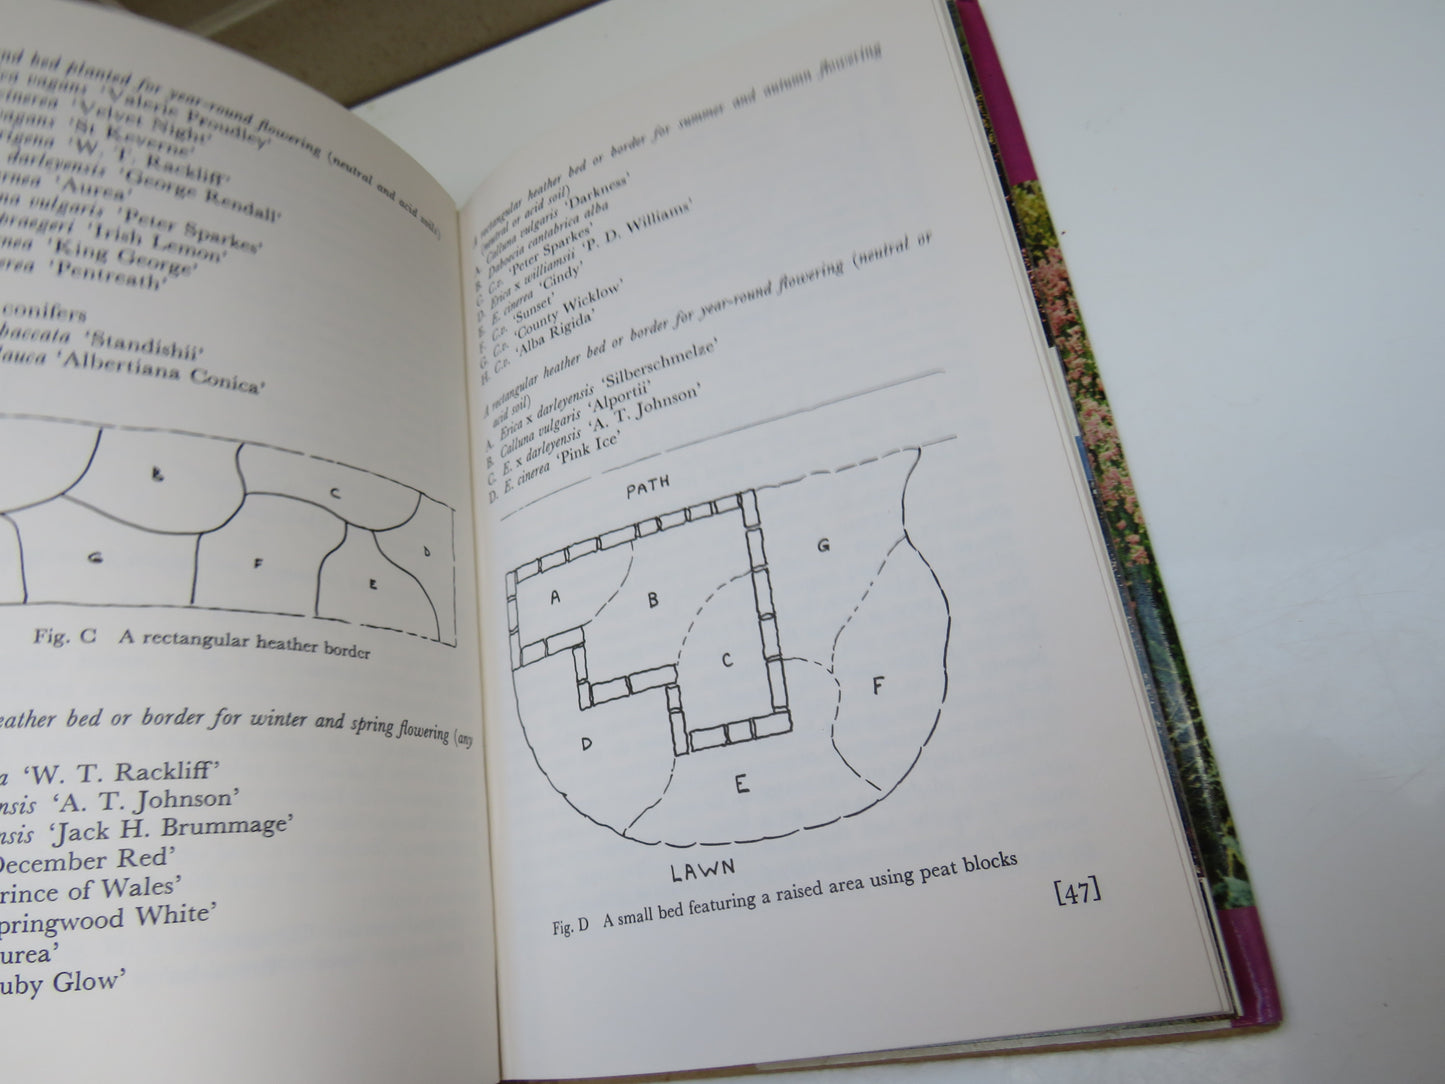 nd bed planted for year-round flowering (neutral and acid soils)
vagans 'Valerie Proudley'
cinerea 'Velvet Night'
vagans 'St Keverne'
rigena 'W. T. Rackliff'
darleyensis 'George Rendall'
rnea 'Aurea'
na vulgaris 'Peter Sparkes'
braegeri 'Irish Lemon'
nea 'King George'
erea 'Pentreath'
conifers
baccata 'Standishii'
lauca 'Albertiana Conica'
B
C
D
G
F
E
Fig. C A rectangular heather border
eather bed or border for winter and spring flowering (any
a 'W. T. Rackliff'
nsis 'A. T. Johnson'
nsis 'Jack H. Brummage'
December Red'
rince of Wales'
pringwood White'
urea'
uby Glow'
A rectangular heather bed or border for summer and autumn flowering
(neutral or acid soil)
A. Calluna vulgaris 'Darkness'
B. Daboecia cantabrica alba
C. C.v. 'Peter Sparkes'
D. Erica x williamsii 'P. D. Williams'
E. E. cinerea 'Cindy'
F. C.v. 'Sunset'
G. C.v. 'County Wicklow'
H. C.v. 'Alba Rigida'
A rectangular heather bed or border for year-round flowering (neutral or
acid soil)
A. Erica x darleyensis 'Silberschmelze'
B. Calluna vulgaris 'Alportii'
C. E. x darleyensis 'A. T. Johnson'
D. E. cinerea 'Pink Ice'
PATH
A
B
G
C
F
D
E
LAWN
Fig. D A small bed featuring a raised area using peat blocks
[47]